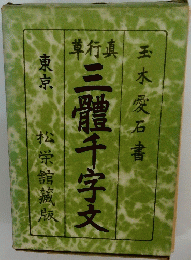 玉木愛石書
真行草
三體千字文
東京 松栄館藏版